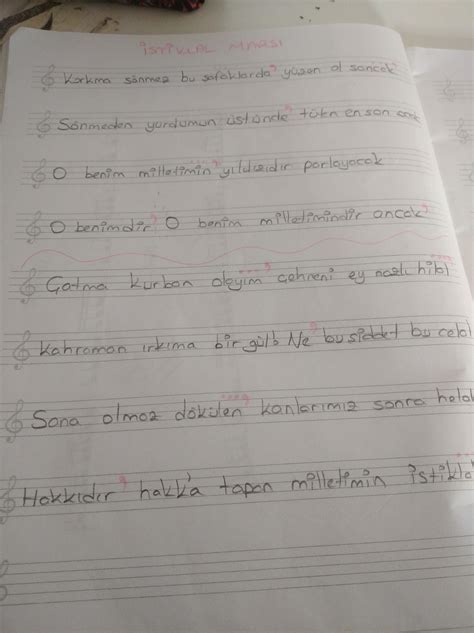 İSTİKLAL MARŞI
Korkma sönmez bu şafaklarda yüzen al sancak
Sönmeden yurdumun üstünde tüten en son
O benim milletimin yıldızıdır parlayacak
O benimdir O benim milletimindir ancak
Çatma kurban olayım çehreni ey nazlı hilal
Kahraman ırkıma bir gül! Ne bu şiddet bu celal
Sana olmaz dökülen kanlarımız sonra helal
Hakkıdır hakk'a tapan milletimin istikla